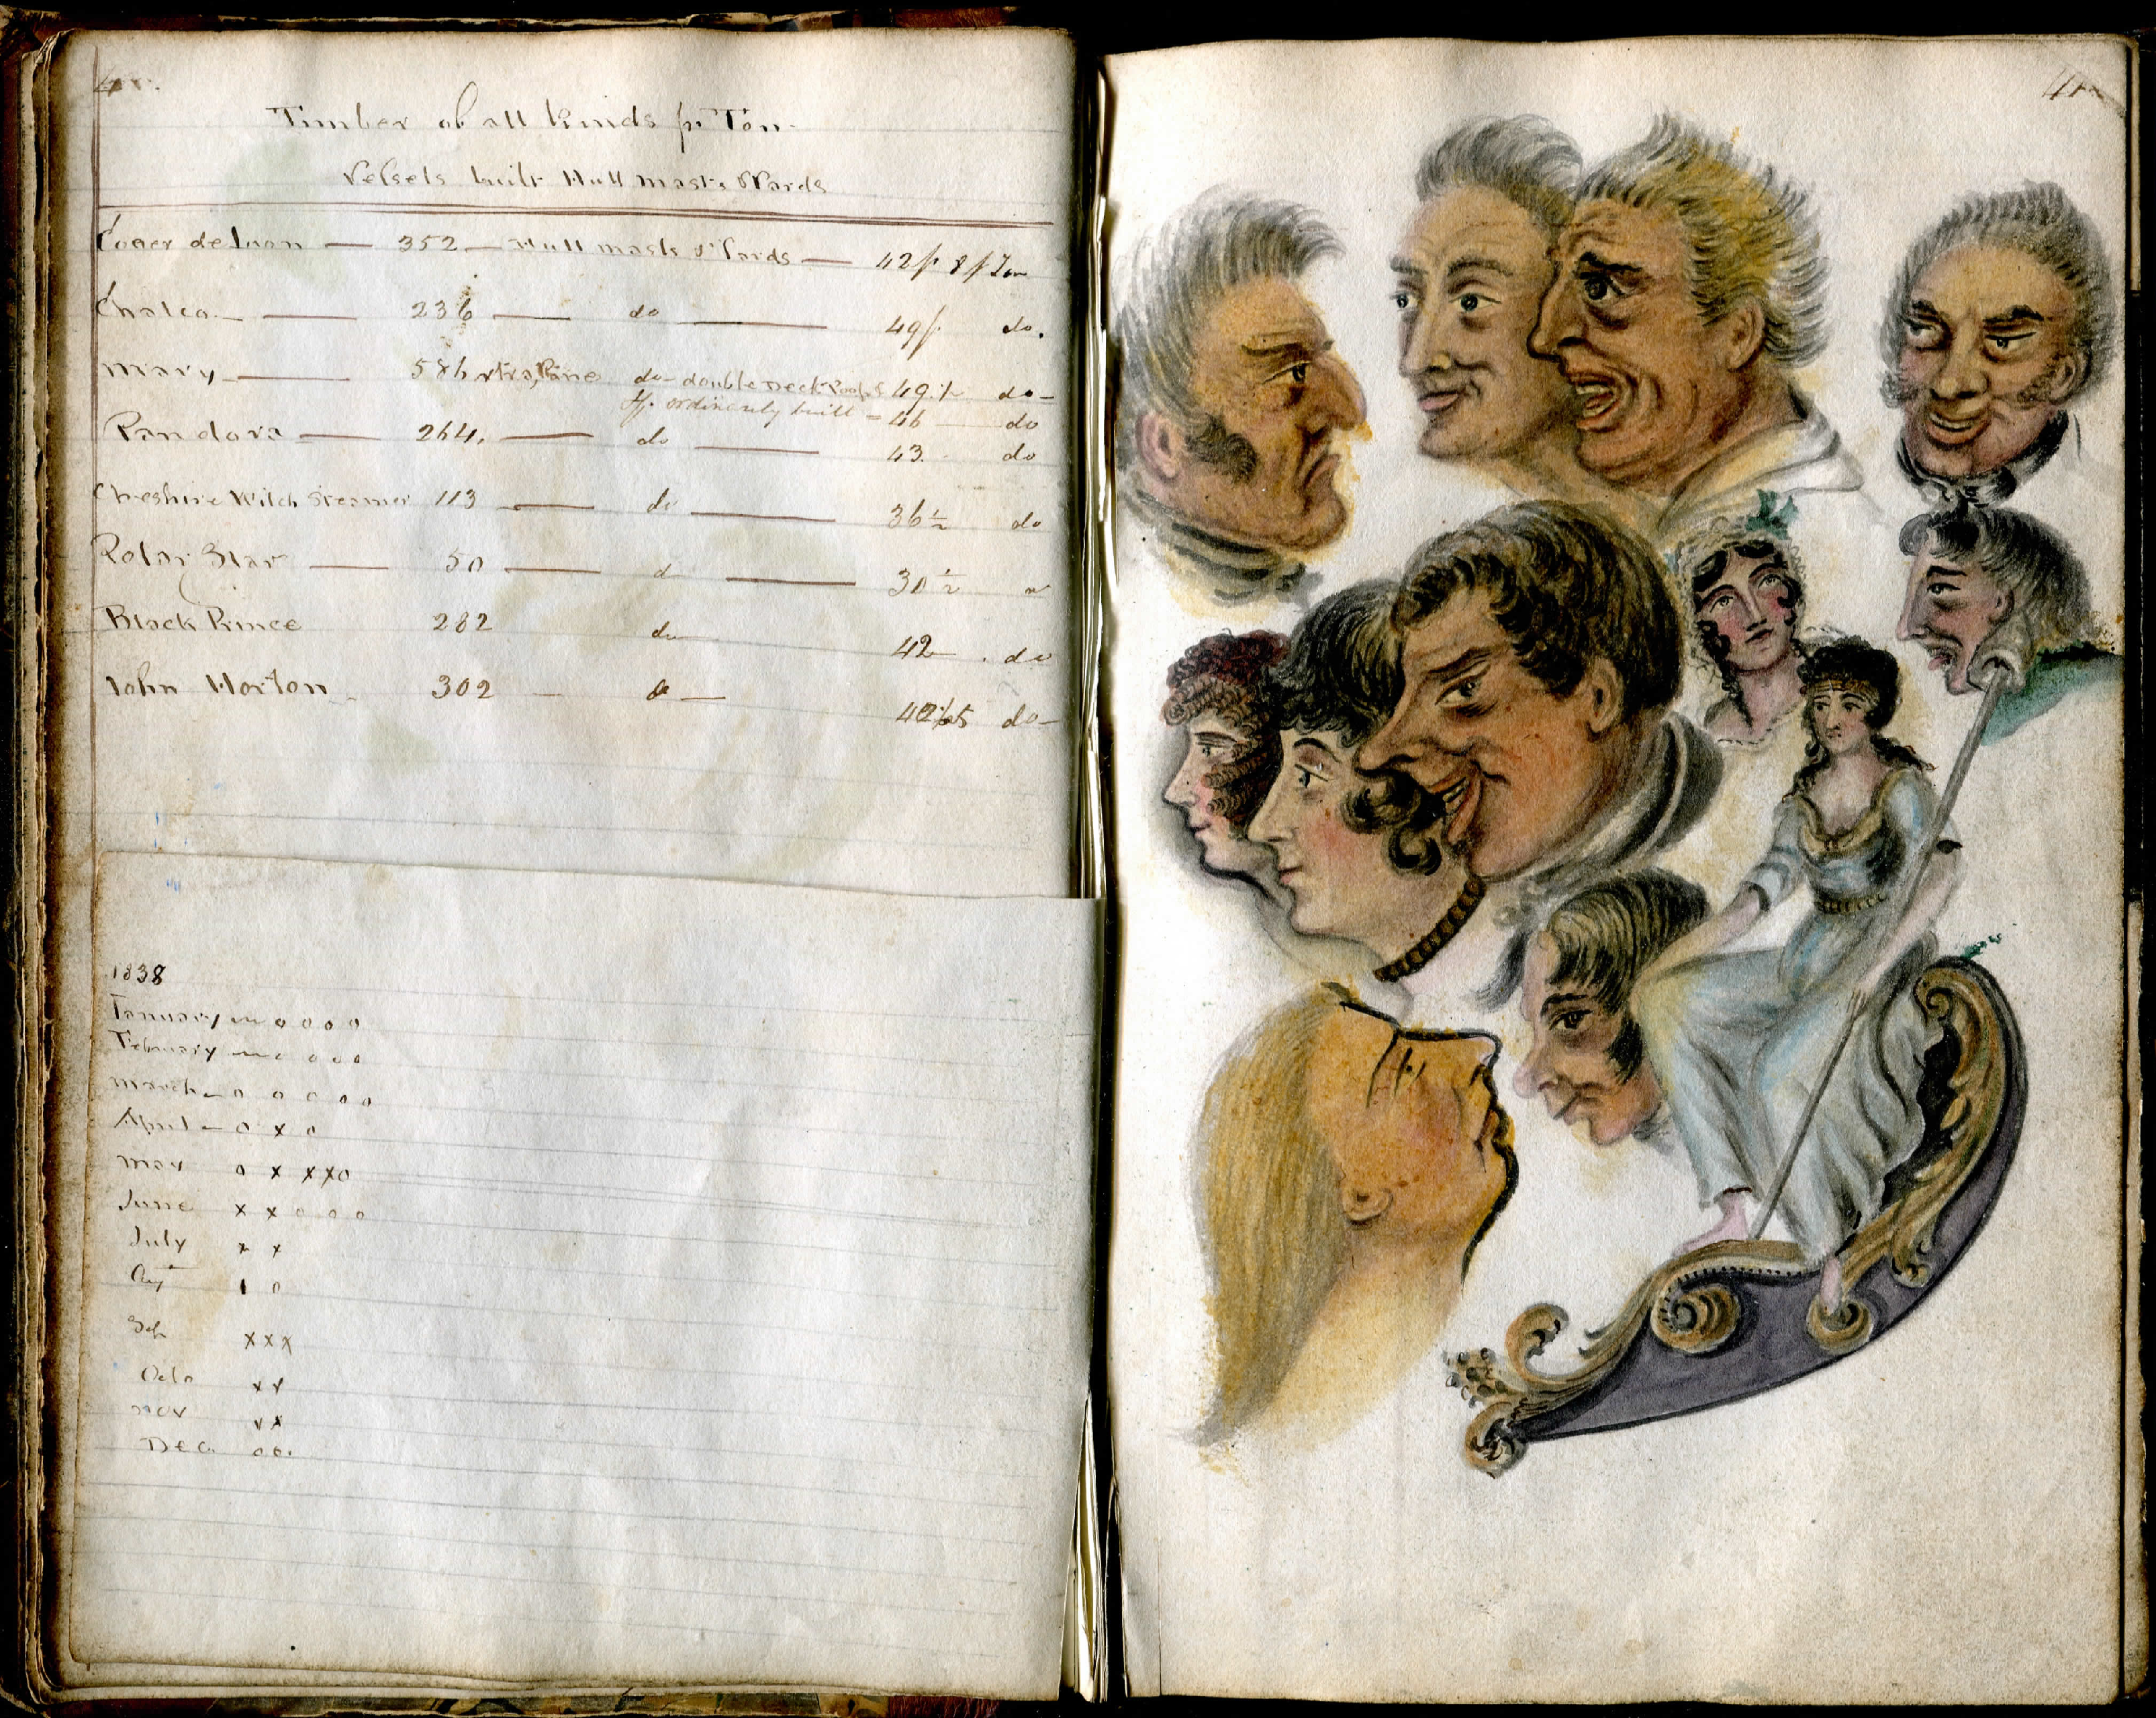 Timber of all Kinds pr Ton
Vessels built Hull masts & Yards
352 — Hull masts & Yards — 42/ 8 p Ton
236 — do — 49/ do.
Mary — 586 do — double Deck 49 do —
If ordinarily built — 46 do
Pandora — 264. — do — 43. do
Cheshire Witch Steamer 113 — do — 36½ do
Polar Star — 50 — d — 30½
Black Prince 282 do 42 . do
John Horton 302 — do — do —
1838
January — o o o o
February — o o o o
March — o o o o o
April — o x o
May o x x x o
June x x o o o
July x x
Aug 1 o
Sep x x x
Octo x x
Nov x x
Dec o o .